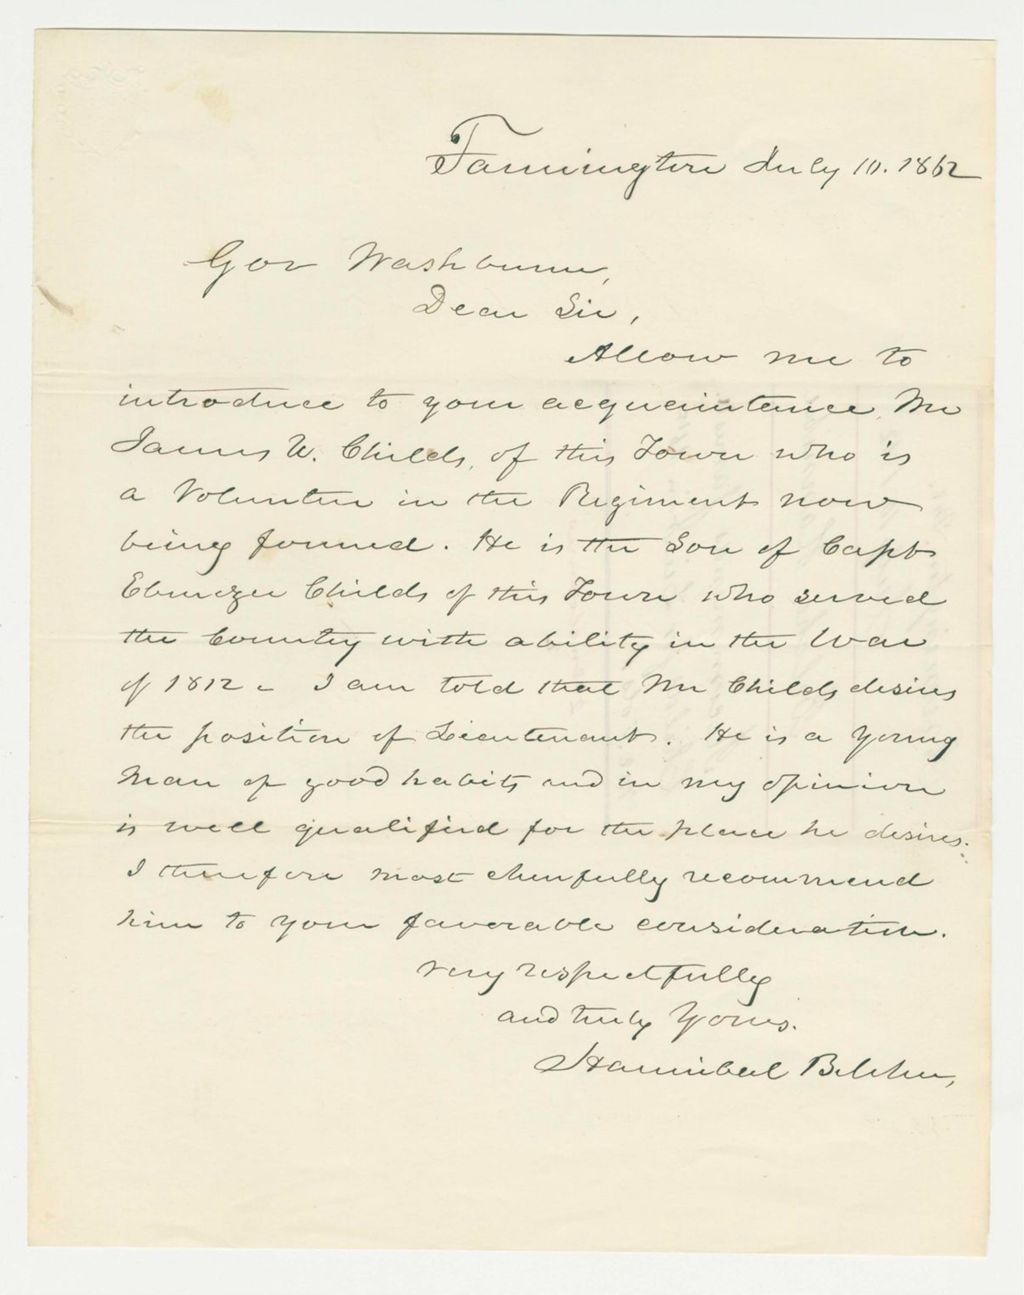 Farmington July 10. 1862
Gov Washburne,
Dear Sir,
Allow me to
introduce to your acquaintance, Mr
James W. Childs, of this Town who is
a Volunteer in the Regiment now
being formed. He is the Son of Capt
Ebenezer Childs of this Town who served
the Country with ability in the War
of 1812 - I am told that Mr Childs desires
the position of Lieutenant. He is a young
man of good habits and in my opinion
is well qualified for the place he desires.
I therefore most cheerfully recommend
him to your favorable consideration.
Very respectfully
and truly Yours.
Hannibal Belcher,